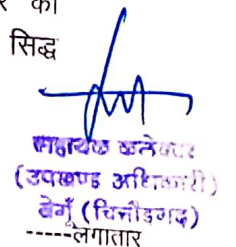 र का
सिद्ध
सहायक कलेक्टर
(उपखण्ड अधिकारी)
बेगूँ (चित्तौड़गढ़)
-----लगातार